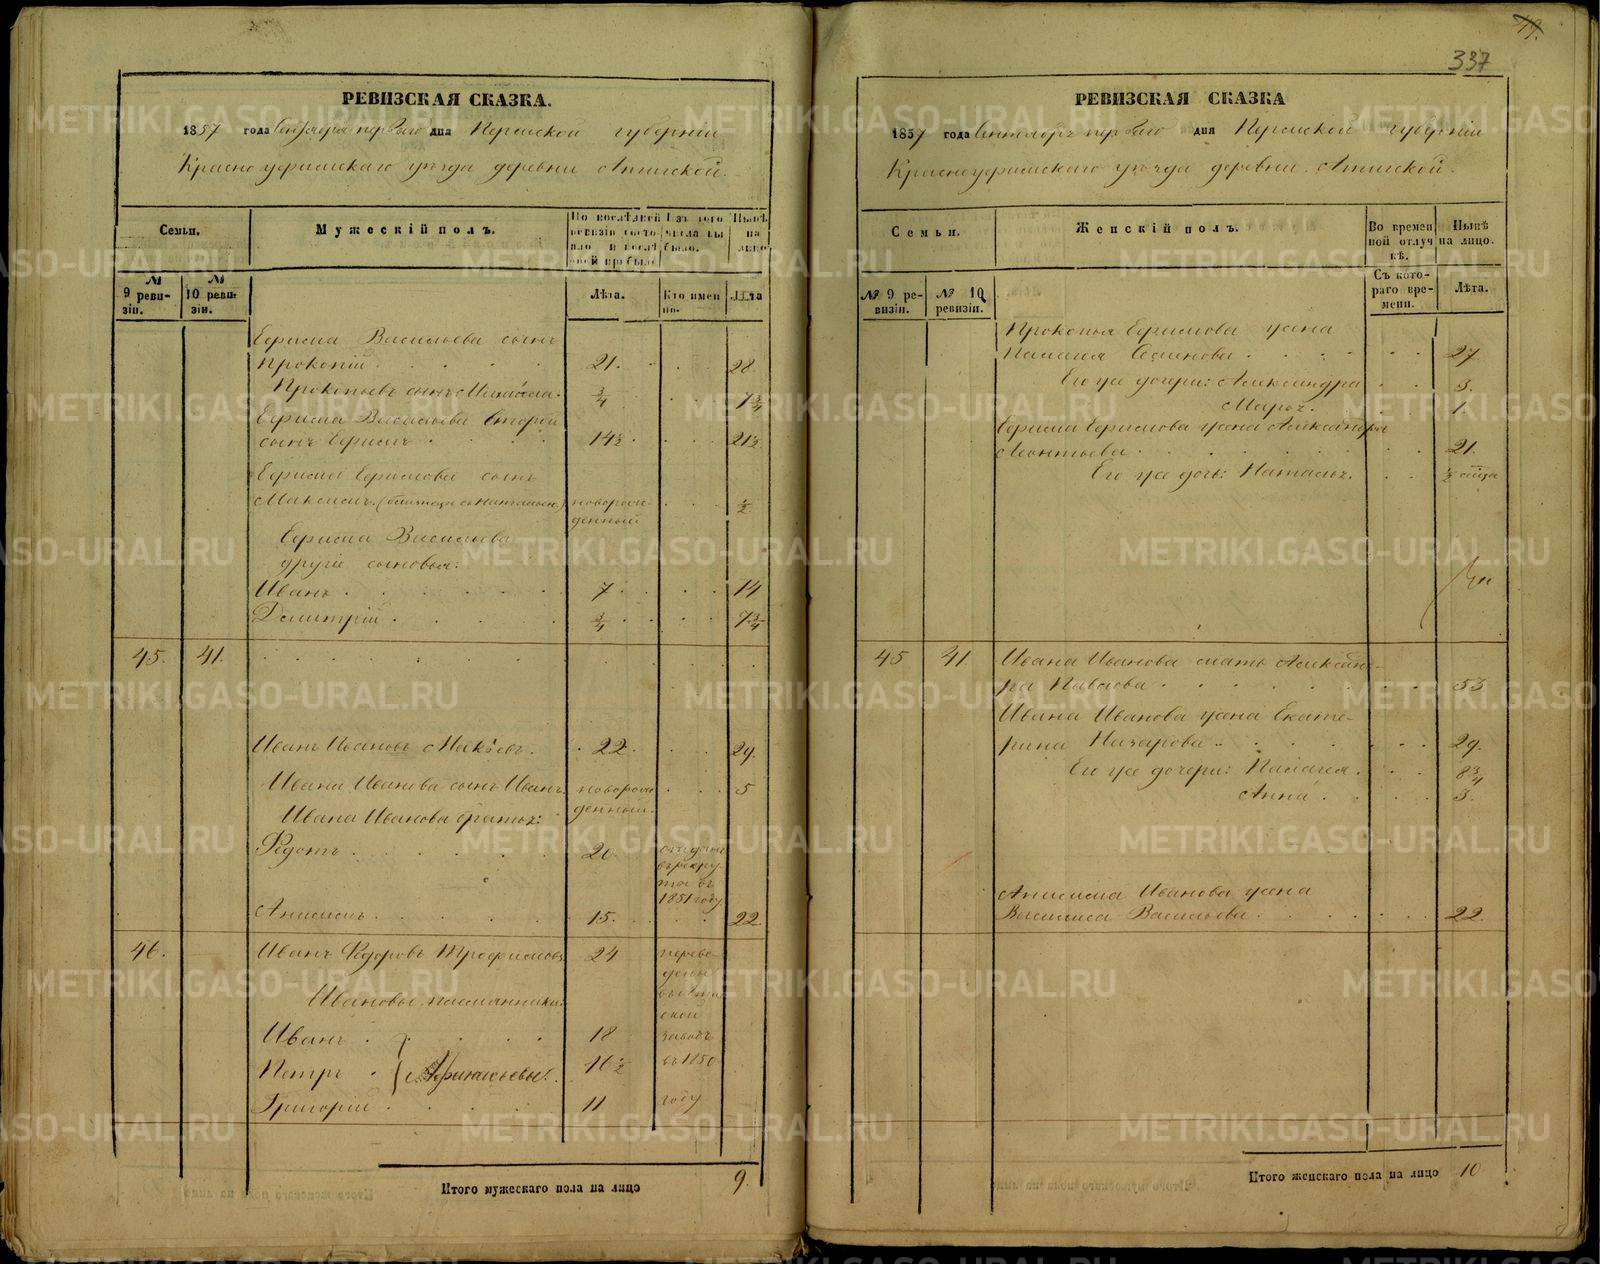 РЕВИЗСКАЯ СКАЗКА.
1857 года Сентября первого дня Пермской губернии
Красноуфимскаго уезда деревни Атигской.
Семьи.
Мужескій полъ.
По послѣдней ревизіи состояло и послѣ оной прибыло
Изъ того числа выбыло.
Нынѣ на лицо
№ 9 ревизіи.
№ 10 ревизіи.
Лѣта.
Кто именно.
Лѣта
Ефрема Васильева сынъ
Прокопій 21. 28
Прокопьевъ сынъ ¾ 7¾
Ефрема Васильева второй
сынъ Ефремъ 14½ 21½
Ефрема Ефремова сынъ
Максимъ новорожденный ½
Ефрема Васильева
другіе сыновья:
Иванъ 7 14
Дмитрій ¾ 7¾
45. 41.
Иванъ Ивановъ 22 29.
Ивана Иванова сынъ Иванъ. новорожденный 5
Ивана Иванова братья:
Федотъ 20 отданъ въ рекруты въ 1851 году
Анисимъ 15. 22
46. Иванъ Федоровъ Трофимовъ 24 переведены въ
Ивановы племянники:
Иванъ 18 заводъ
Петръ Афанасьевы. 16½ въ 1850
Григорій 11 году
Итого мужескаго пола на лицо 9.
337
РЕВИЗСКАЯ СКАЗКА
1857 года Сентября первого дня Пермской губерніи
Красноуфимского уезда деревни Атигской.
Семьи.
Женскій полъ.
Во временной отлучкѣ.
Нынѣ на лицо.
№ 9 ревизіи.
№ 10 ревизіи.
Съ котораго времени.
Лѣта.
Прокопья Ефремова жена
Палагея Семенова 27
Его же дочери: Александра 3.
Марья. 1.
Ефрема Ефремова жена Александра
Леонтьева 21.
Его же дочь: Наталья. ½
45 41 Ивана Иванова мать Александ-
ра Павлова 53
Ивана Иванова жена Екате-
рина Назарова 29.
Его же дочери: Палагея. 8¾
Анна 3.
Анисима Иванова жена
Васильева 22.
Итого женскаго пола на лицо 10
METRIKI.GASO-URAL.RU